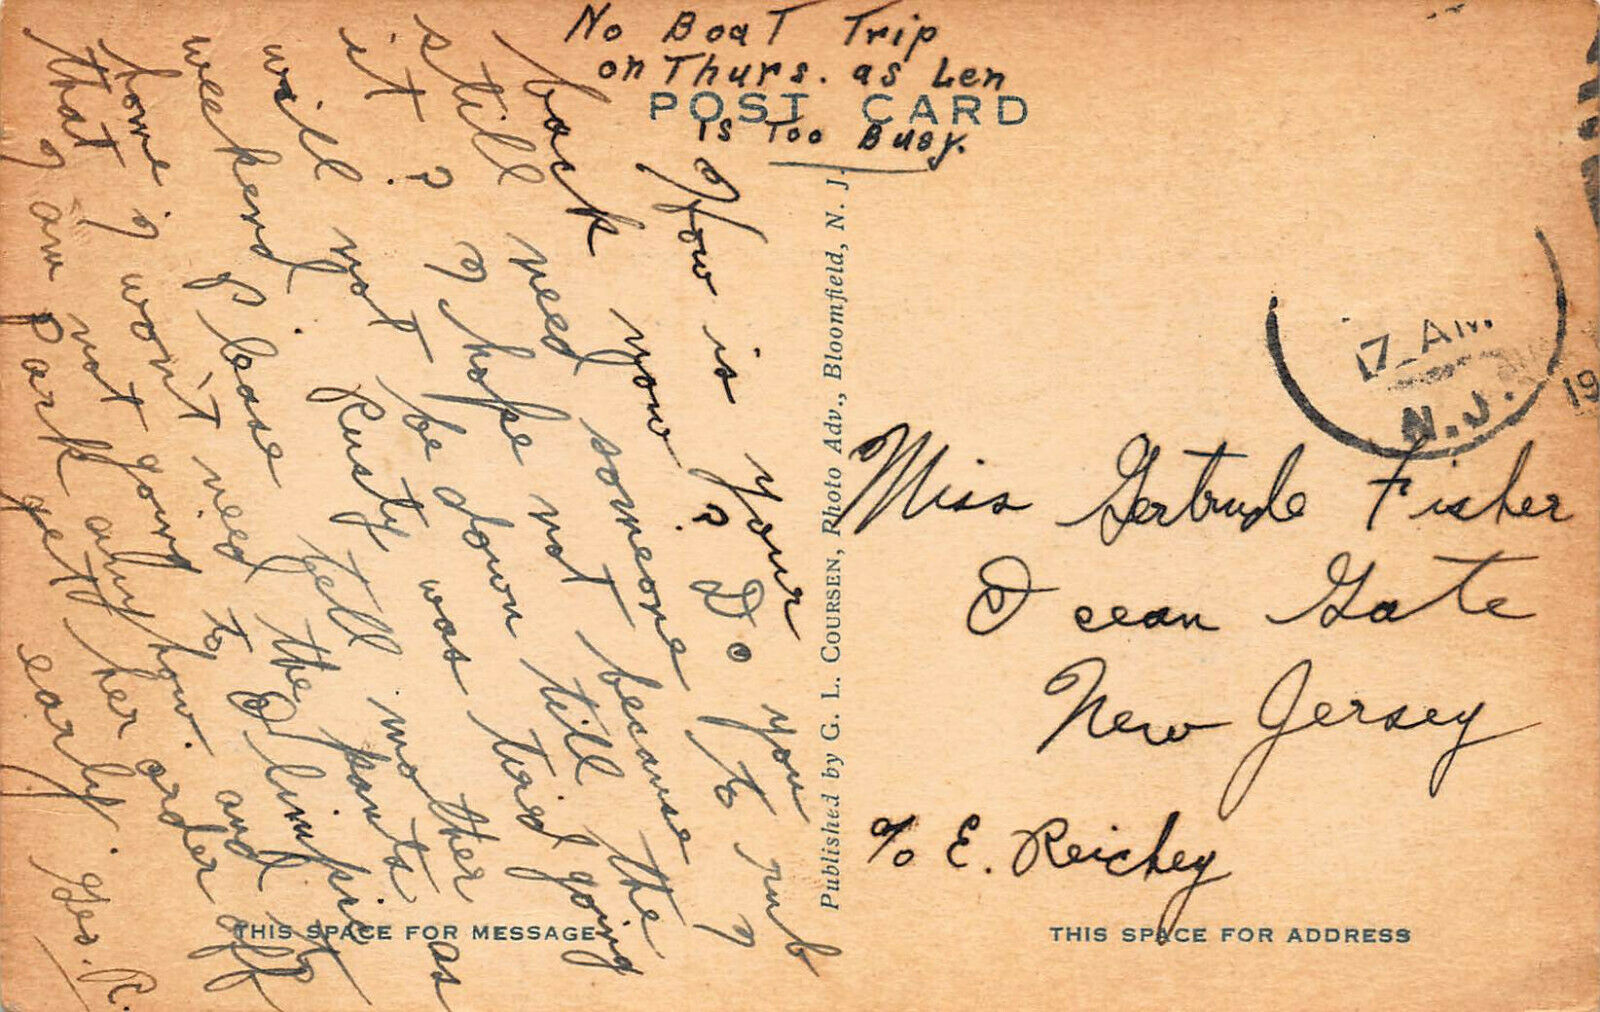 No Boat Trip
on Thurs. as Len
POST CARD
is Too Busy.
How is your
back now? Do you
still need someone to rub
it? I hope not because I
will not be down till the
weekend. Rusty was tired going
home. Please tell mother
that I won't need the pants as
I am not going to Olimpic
Park anyhow. and to
get her order off
early. Geo. R.
THIS SPACE FOR MESSAGE
Published by G. L. COURSEN, Photo Adv., Bloomfield, N. J.
7 AM.
N.J.
19
Miss Gertrude Fisher
Ocean Gate
New Jersey
c/o E. Reichey
THIS SPACE FOR ADDRESS